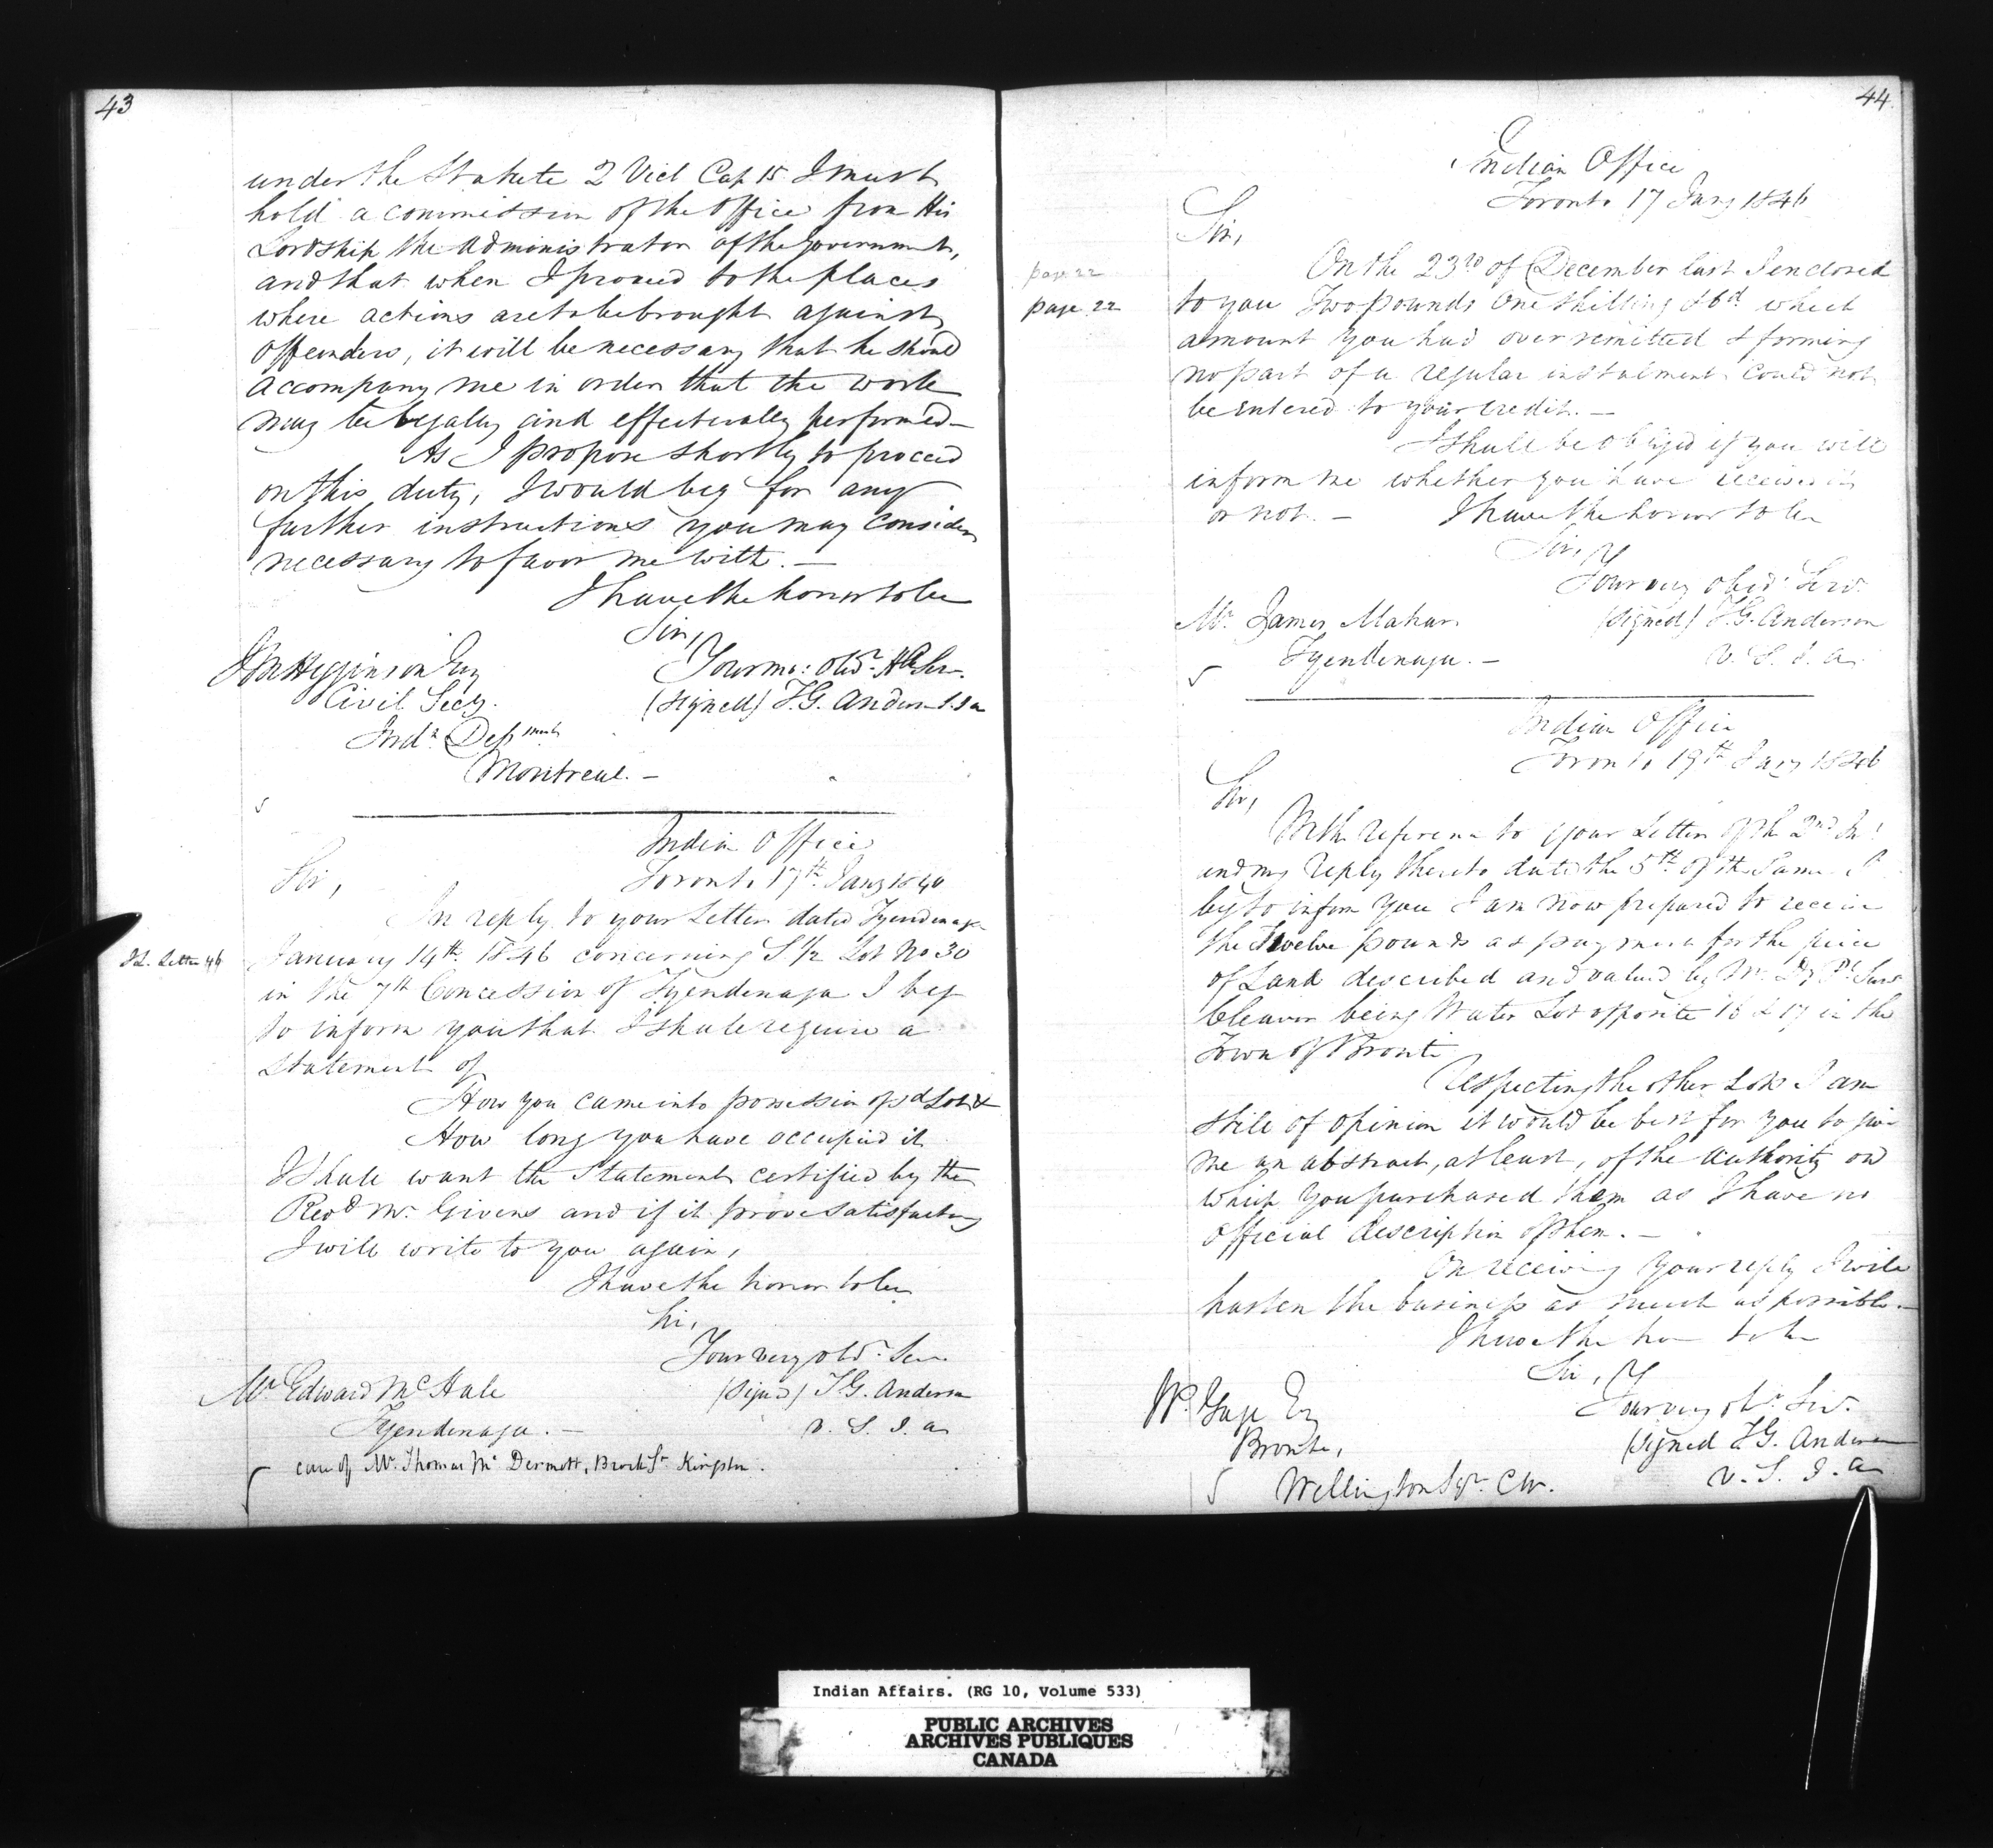 43
under the Statute 2 Vict Cap 15 I must
hold a commission of the Office from His
Lordship the Administrator of the Government,
and that when I proceed to the places
where actions are to be brought against
Offenders, it will be necessary that he should
accompany me in order that the work
may be legally and effectually performed –
As I propose shortly to proceed
on this duty, I would beg for any
further instructions you may consider
necessary to favor me with. –
I have the honor to be
Sir,
J M Higginson Esq
Your mo: Obdt. Hble Ser.
Civil Secy.
(signed) T.G. Anderson
Indn Depment
Montreal. –
Indian Office
Toronto 17th Jany 1846
Sir,
In reply to your Letter dated Tyendenaga
Letter 46
January 14th 1846 concerning S 1/2 Lot No 30
in the 7th Concession of Tyendenaga I beg
to inform you that I shall require a
statement of
How you came into possession of sd Lot &
How long you have occupied it
I shall want the Statement certified by the
Revd Mr. Givens and if it prove satisfactory
I will write to you again,
I have the honor to be
Sir,
Your very obdt. Ser.
Mr. Edward McHale
(signed) T.G. Anderson
Tyendenaga. –
V. S. I. A
care of Mr. Thomas Mc Dermott, Brock St. Kingston.
44.
Indian Office
Toronto 17 Jany 1846
Sir,
On the 23rd of December last I enclosed
page 22
page 22
to you Two pounds One shilling & 6d which
amount you had over remitted & forming
no part of a regular instalment could not
be entered to your credit. –
I shall be obliged if you will
inform me whether you have received it
or not. – I have the honor to be
Sir,
Your very obedt. Serv.
Mr. James Mahar
(signed) T.G. Anderson
Tyendenaga. –
V. S. I. A.
Indian Office
Toronto 19th Jany 1846
Sir,
With reference to your Letter of the 2nd Inst
and my reply thereto dated the 5th of the same I
beg to inform you I am now prepared to receive
the Twelve pounds as payment for the piece
of Land described and valued by Mr. Dy Pl Surv
Cleaver being Water Lot opposite 16 & 17 in the
Town of Bronte
Respecting the other Lots I am
still of opinion it would be best for you to give
me an abstract, at least, of the Authority on
which you purchased them as I have no
official description of them. –
On receiving your reply I will
hasten the business as much as possible. –
I have the hon to be
Sir,
Your very obt. Serv.
Gage Esq
(signed T.G. Anderson
Bronte,
V. S. I. A
Wellington Sqr. CW.
Indian Affairs. (RG 10, Volume 533)
PUBLIC ARCHIVES
ARCHIVES PUBLIQUES
CANADA